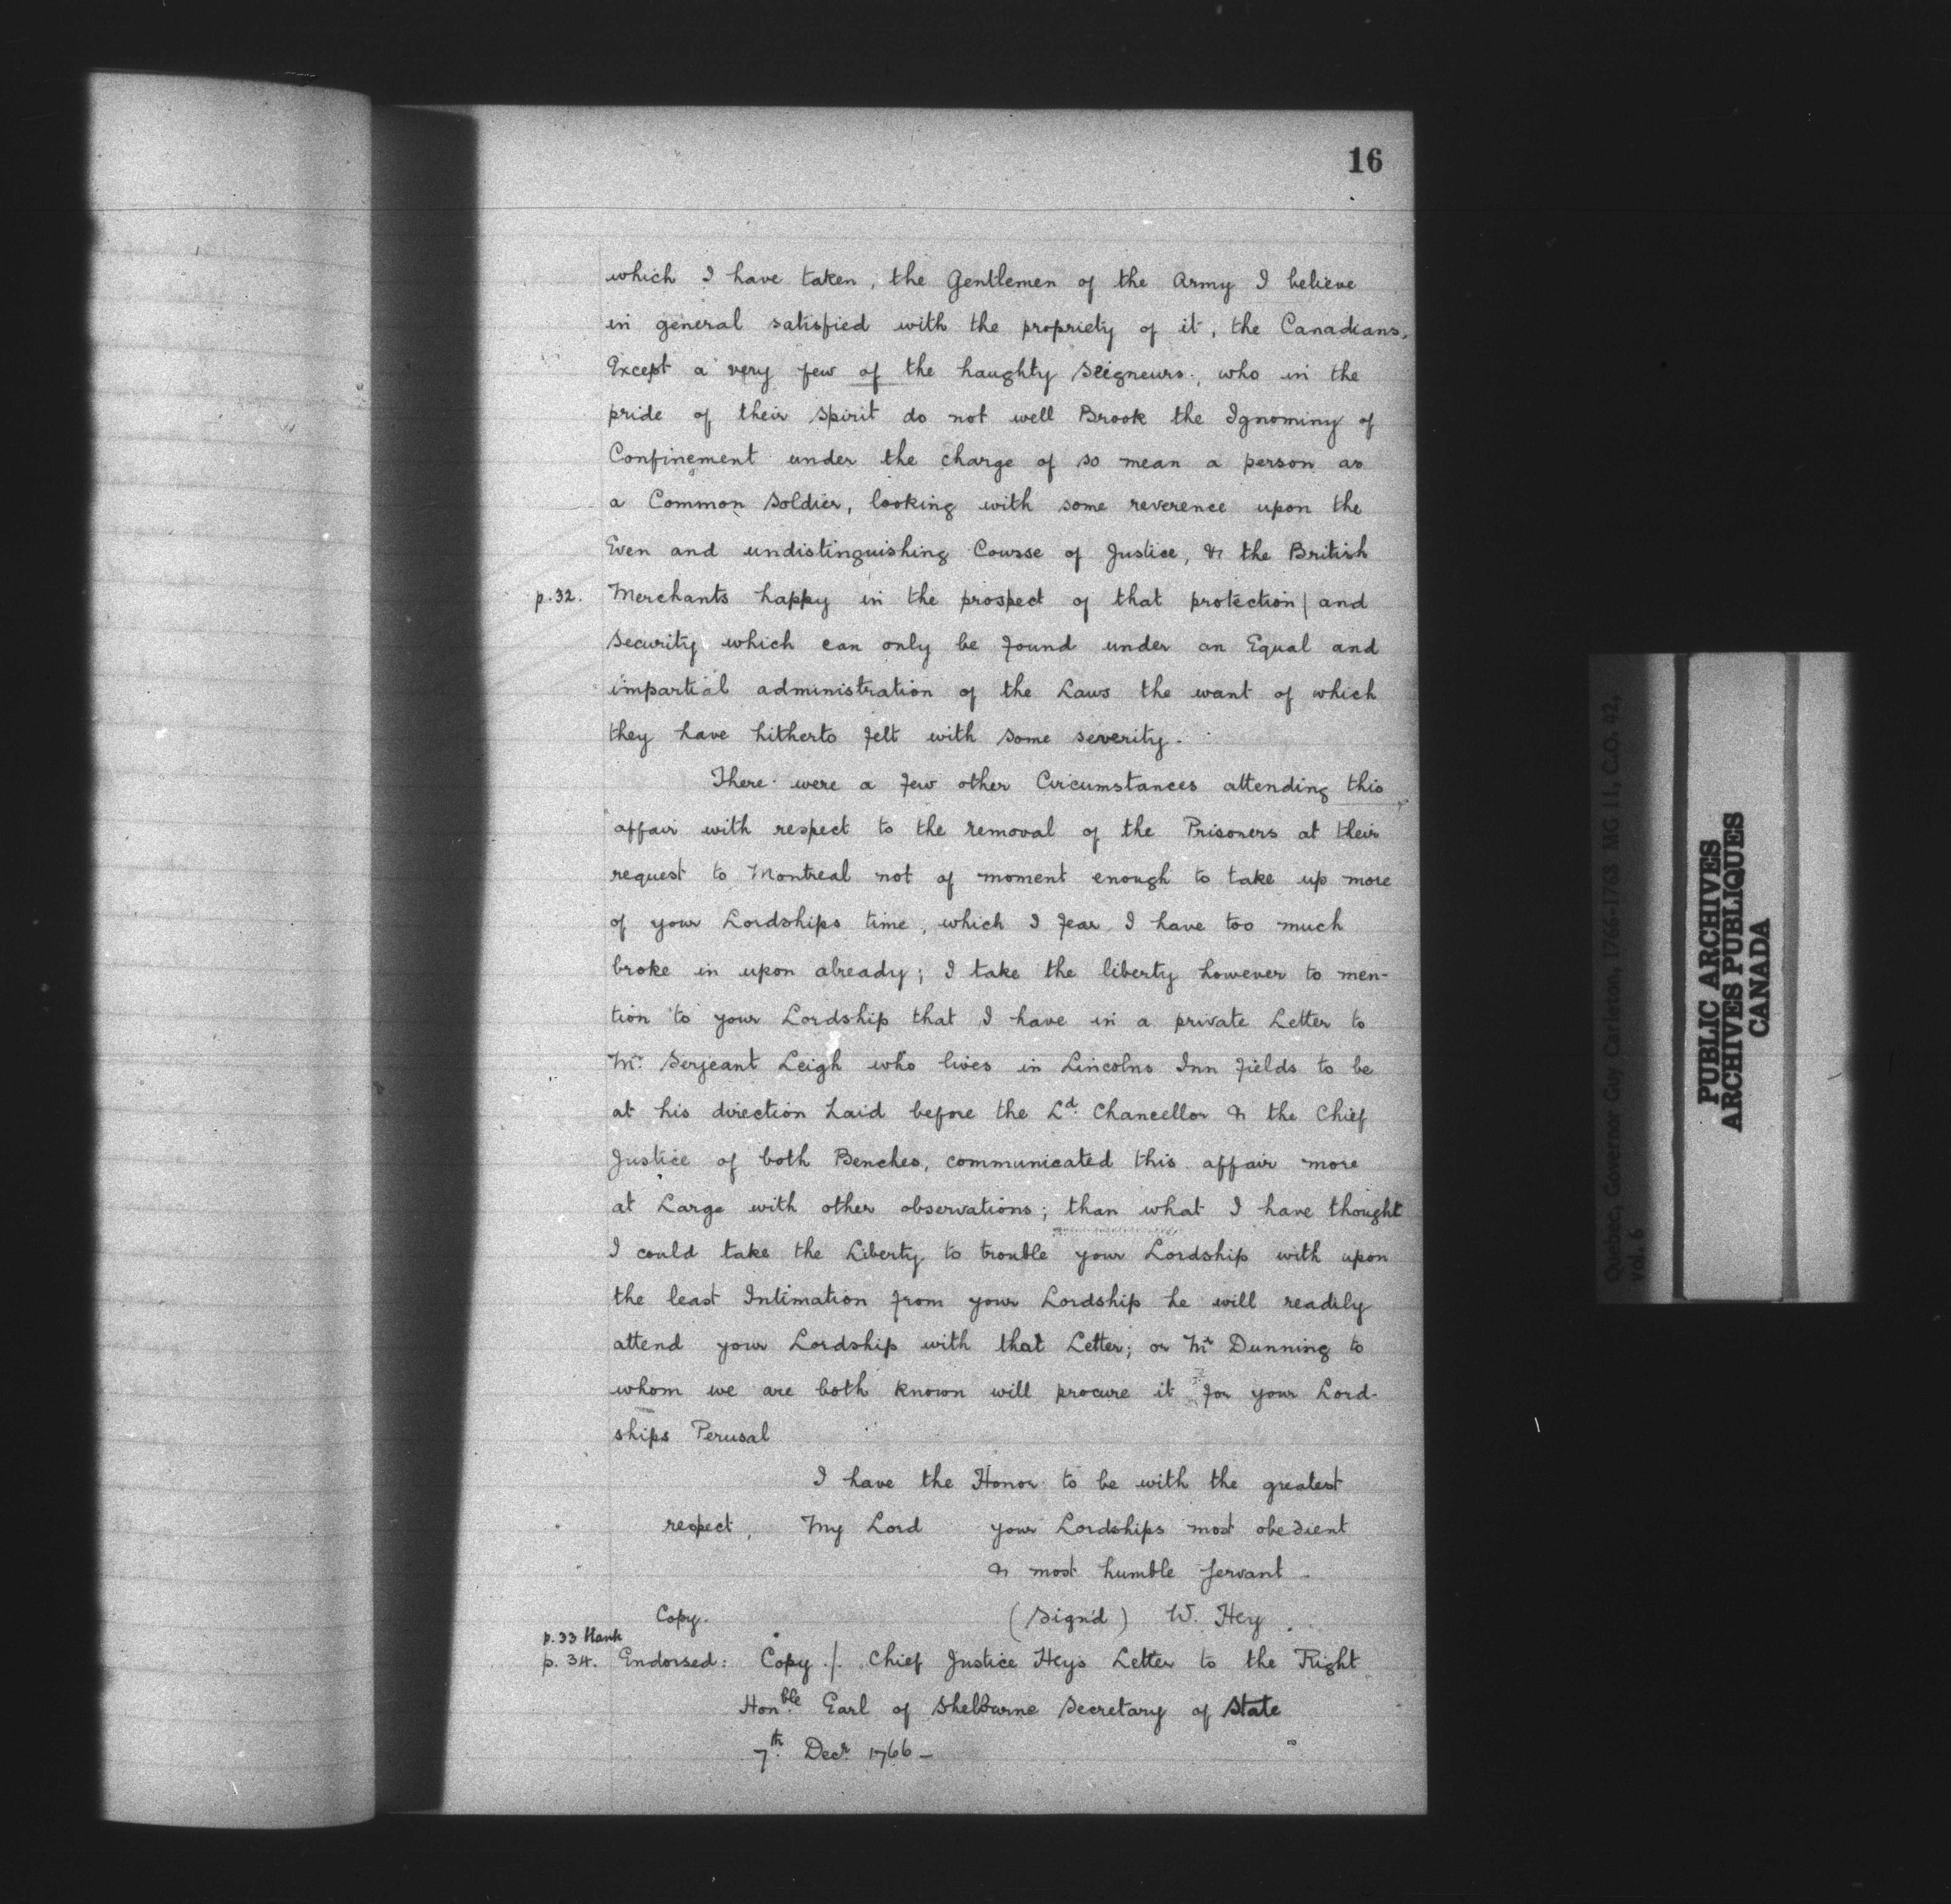 16
which I have taken, the Gentlemen of the Army I believe
in general satisfied with the propriety of it, the Canadians,
Except a very few of the haughty Seigneurs, who in the
pride of their Spirit do not well Brook the Ignominy of
Confinement under the charge of so mean a person as
a Common Soldier, looking with some reverence upon the
Even and undistinguishing Course of Justice, & the British
p.32. Merchants happy in the prospect of that protection | and
Security which can only be found under an Equal and
impartial administration of the Laws the want of which
they have hitherto felt with some severity.
There were a few other Circumstances attending this
affair with respect to the removal of the Prisoners at their
request to Montreal not of moment enough to take up more
of your Lordships time, which I fear I have too much
broke in upon already; I take the liberty however to men-
tion to your Lordship that I have in a private Letter to
Mr. Serjeant Leigh who lives in Lincolns Inn fields to be
at his direction Laid before the Ld. Chancellor & the Chief
Justice of both Benches, communicated this affair more
at Large with other observations; than what I have thought
I could take the Liberty to trouble your Lordship with upon
the least Intimation from your Lordship he will readily
attend your Lordship with that Letter; or Mr Dunning to
whom we are both known will procure it for your Lord-
ships Perusal
I have the Honor to be with the greatest
respect, My Lord your Lordships most obedient
& most humble Servant
Copy. (Sign'd) W. Hey.
p.33 blank
p. 34. Endorsed: Copy /. Chief Justice Hey's Letter to the Right
Honble. Earl of Shelburne Secretary of State
7th. Decr. 1766 –
Quebec, Governor Guy Carleton, 1766-1768 MG 11, C.O. 42,
vol. 6
PUBLIC ARCHIVES
ARCHIVES PUBLIQUES
CANADA